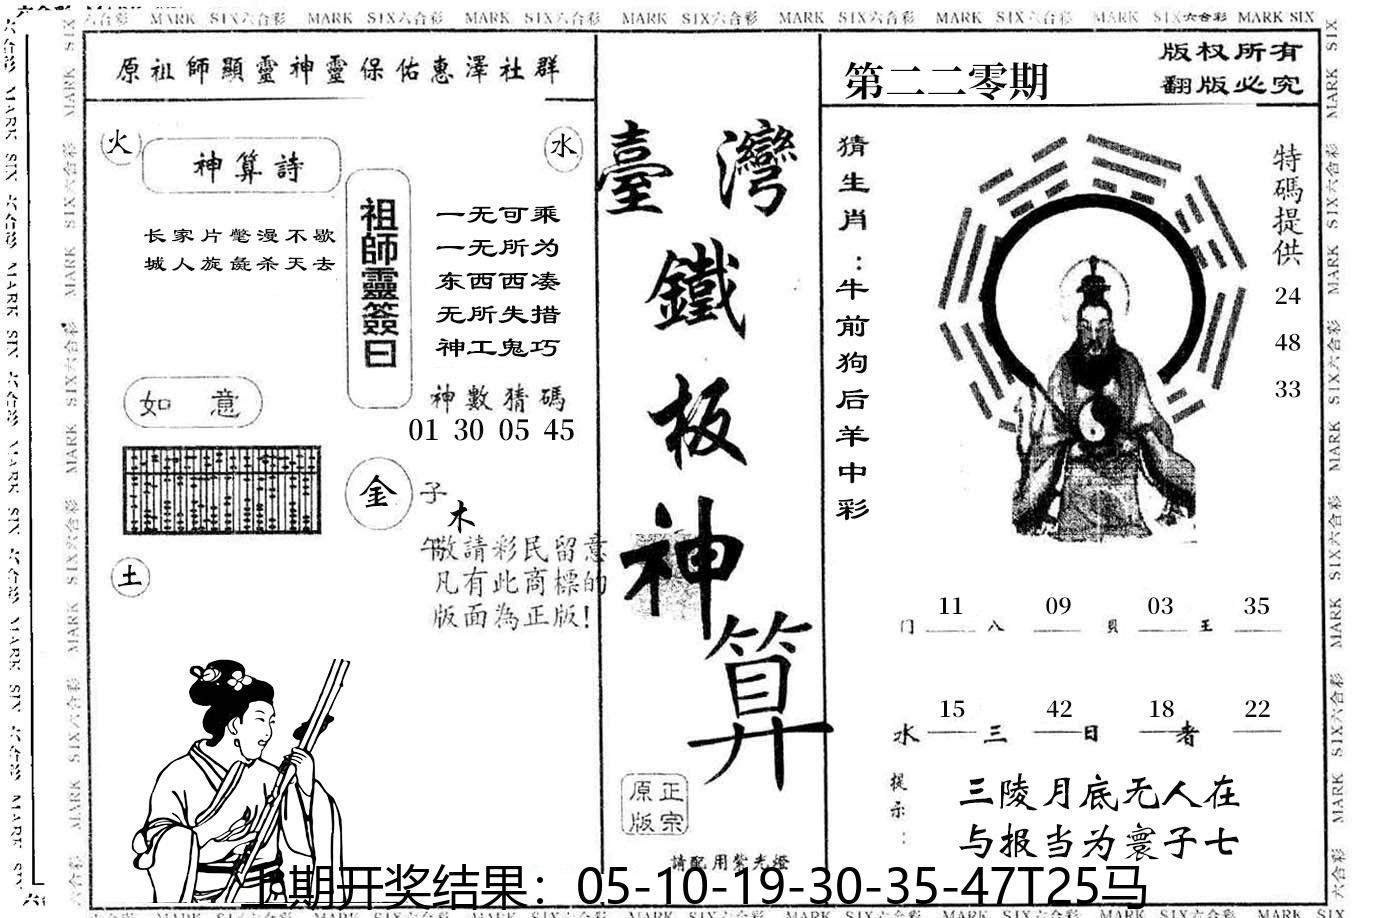 六合彩 MARK SIX六合彩 MARK SIX六合彩 MARK SIX六合彩 MARK SIX六合彩 MARK SIX六合彩 MARK SIX六合彩 MARK SIX六合彩 MARK SIX
原祖師顯靈神靈保佑惠澤社群
火
水
神算詩
长家片毫漫不歇
城人旋毵杀天去
祖師靈簽曰
一无可乘
一无所为
东西西凑
无所失措
神工鬼巧
神數猜碼
01 30 05 45
如意
金
子
木
午
敬請彩民留意
凡有此商標的
版面為正版!
土
臺灣
鐵
板
神
算
正宗
原版
請配用紫光燈
第二二零期
版权所有
翻版必究
猜生肖:牛前狗后羊中彩
特碼提供
24
48
33
11 09 03 35
门 八 貝 王
15 42 18 22
水 三 日 者
提示:
三陵月底无人在
与报当为寰子七
上期开奖结果：05-10-19-30-35-47T25马